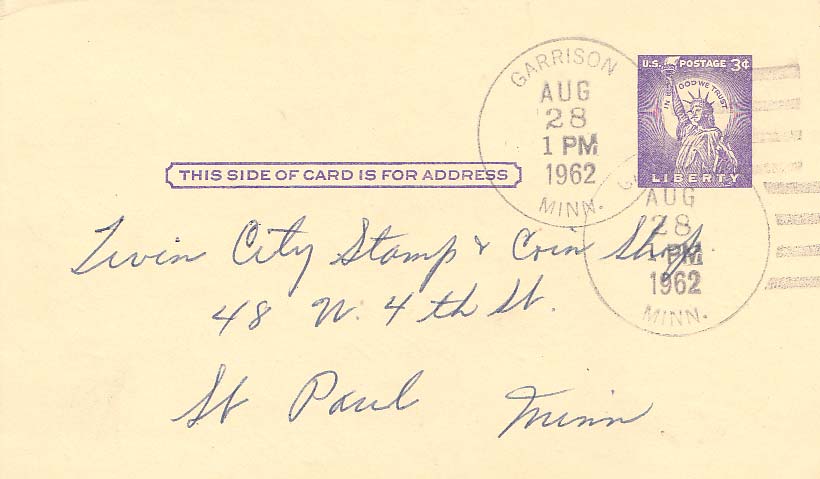 GARRISON
AUG
28
1 PM
1962
MINN.
U.S. POSTAGE 3¢
IN GOD WE TRUST
LIBERTY
AUG
28
1 PM
1962
MINN.
THIS SIDE OF CARD IS FOR ADDRESS
Twin City Stamp & Coin Shop.
48 W. 4th St.
St Paul Minn